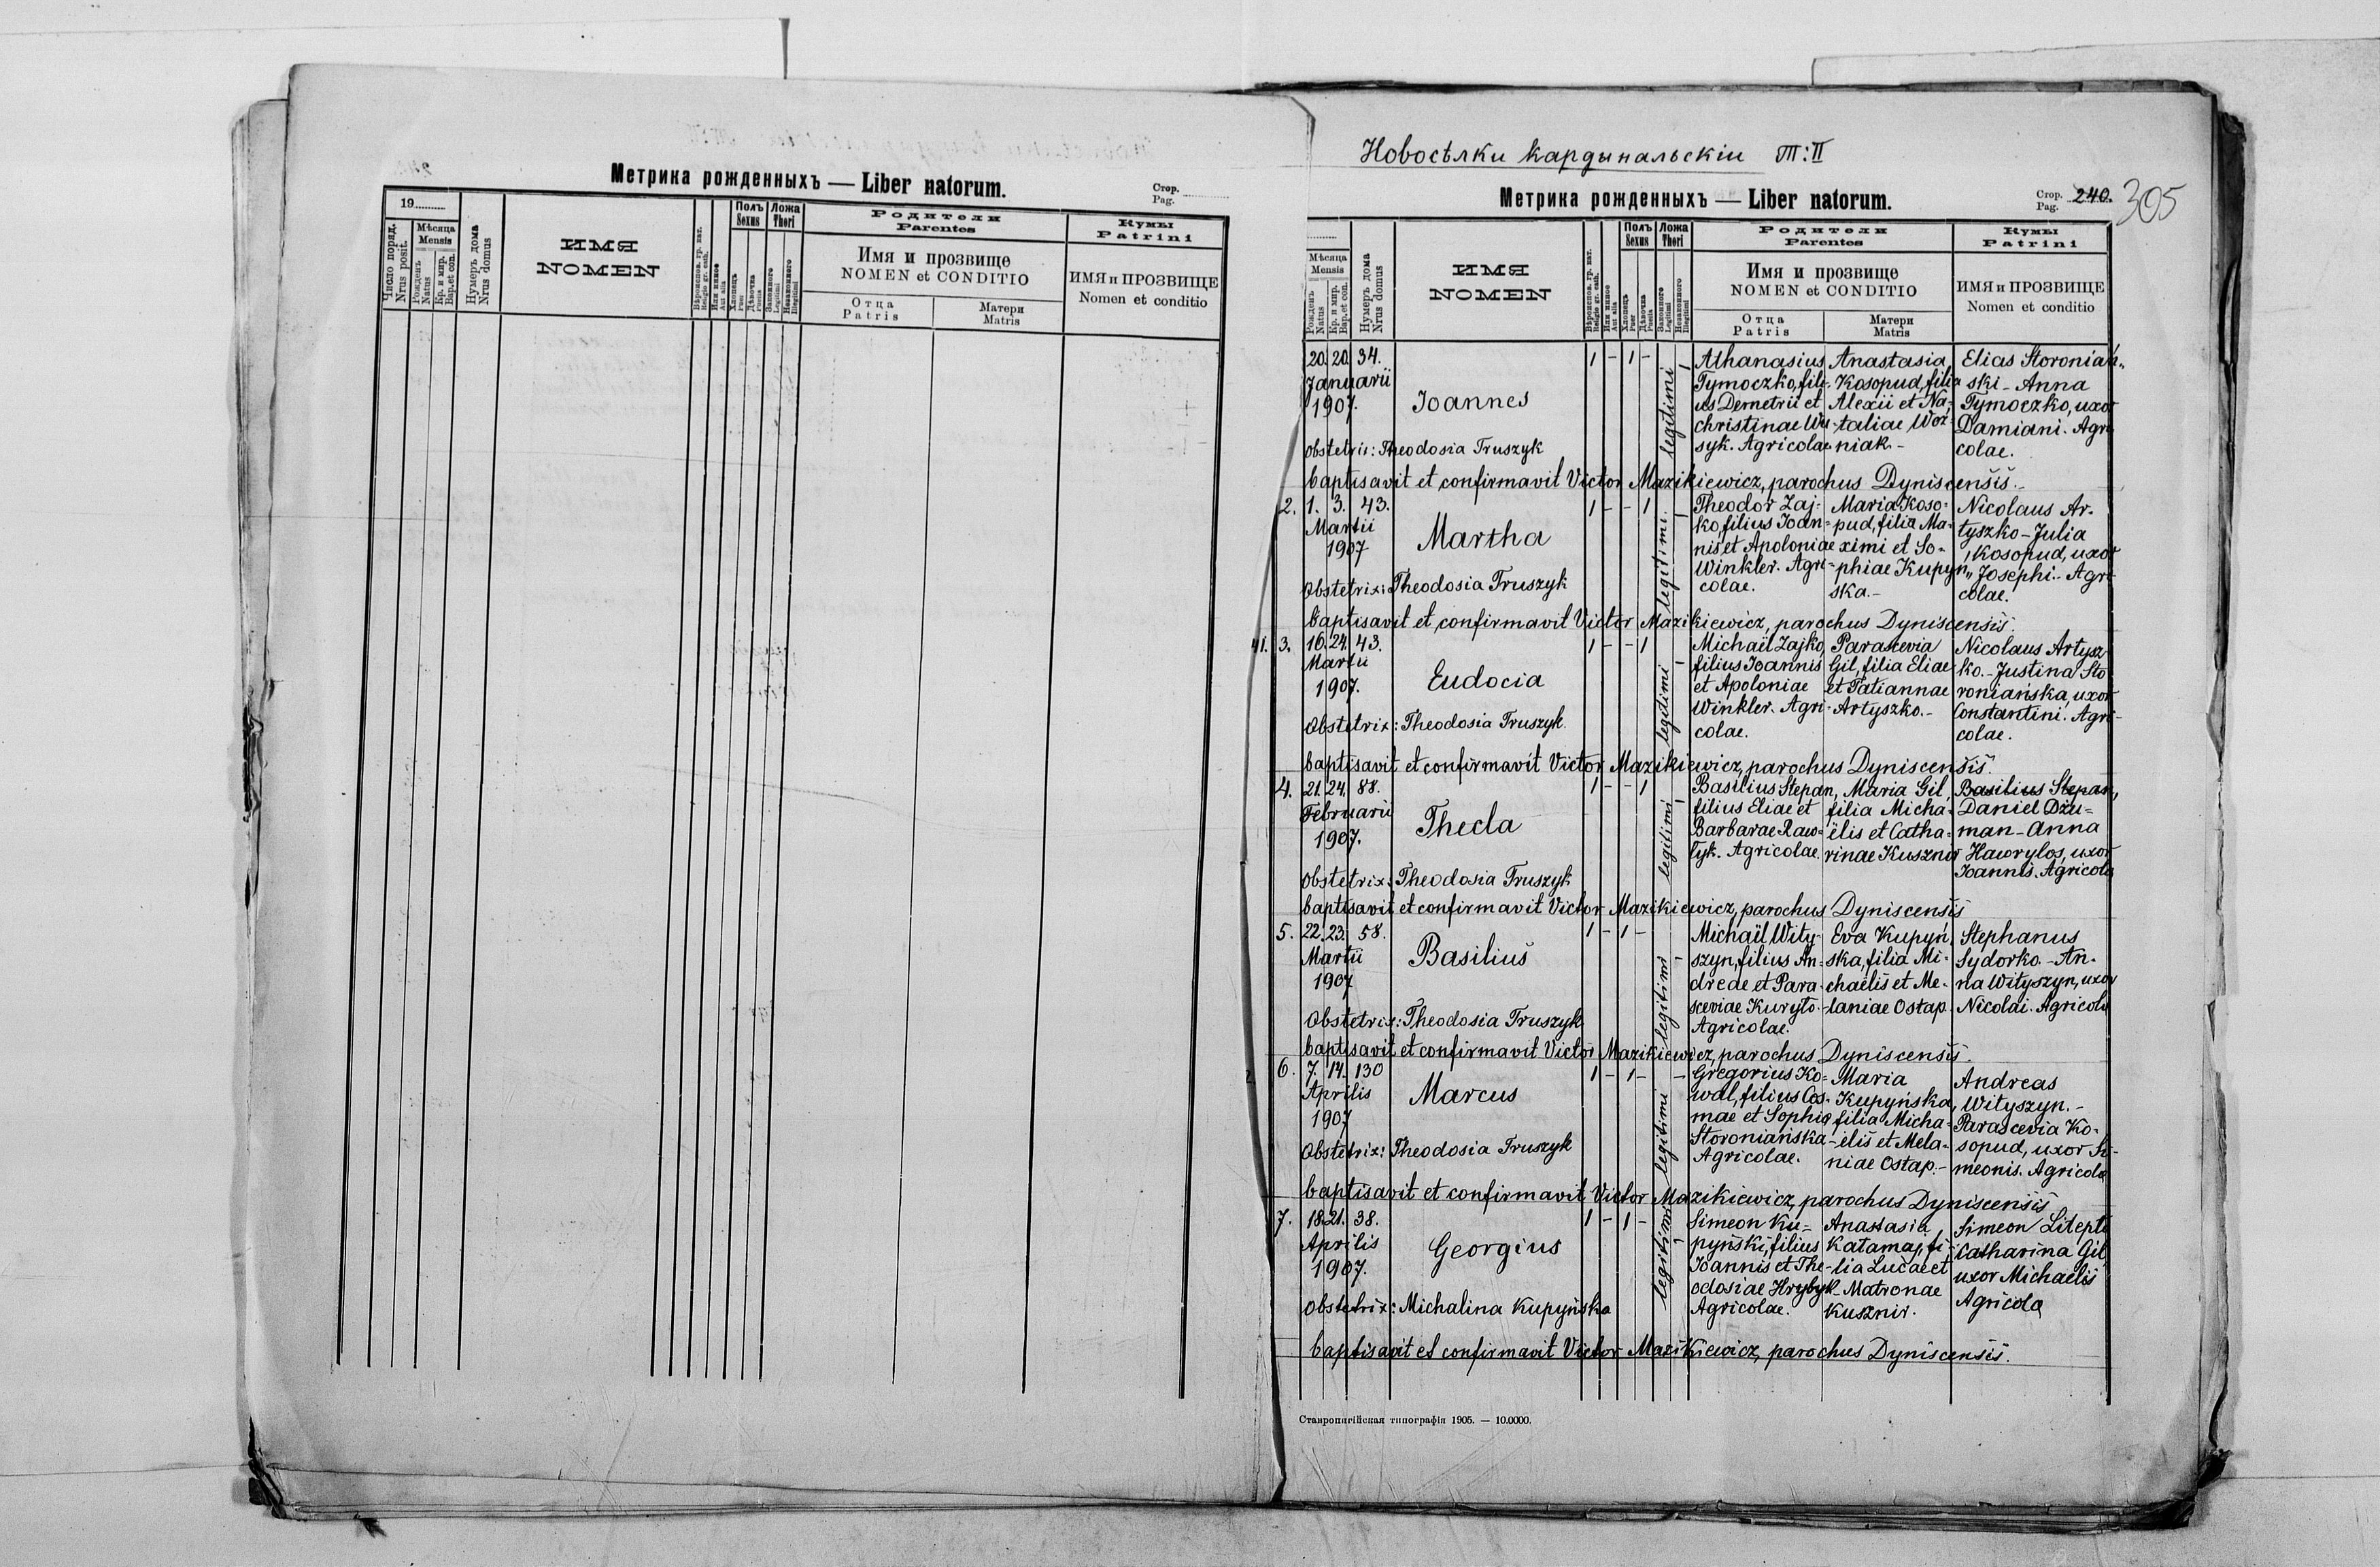 Метрика рожденныхъ — Liber natorum.
Стор.
Pag.
19
Число поряд.
Nrus posit.
Мѣсяца
Mensis
Рожденъ
Natus
Кр. и мир.
Bap. et con.
Нумеръ дома
Nrus domus
ИМЯ
NOMEN
Вѣроиспов. гр. кат.
Religio gr. cath.
Или инное
Aut alia
Полъ
Sexus
Хлопецъ
Puer
Дѣвочка
Puella
Ложа
Thori
Законного
Legitimi
Незаконного
Illegitimi
Родители
Parentes
Имя и прозвище
NOMEN et CONDITIO
Отца
Patris
Матери
Matris
Кумы
Patrini
ИМЯ и ПРОЗВИЩЕ
Nomen et conditio
Новосѣлки кардынальскіи Т:II
Метрика рожденныхъ — Liber natorum.
Стор.
Pag. 240.
305
Мѣсяца
Mensis
Рожденъ
Natus
Кр. и мир.
Bap. et con.
Нумеръ дома
Nrus domus
ИМЯ
NOMEN
Вѣроиспов. гр. кат.
Religio gr. cath.
Или инное
Aut alia
Полъ
Sexus
Хлопецъ
Puer
Дѣвочка
Puella
Ложа
Thori
Законного
Legitimi
Незаконного
Illegitimi
Родители
Parentes
Имя и прозвище
NOMEN et CONDITIO
Отца
Patris
Матери
Matris
Кумы
Patrini
ИМЯ и ПРОЗВИЩЕ
Nomen et conditio
20. 20. 34.
Januarii
1907.
Joannes
1 - 1 -
legitimi
Athanasius
Tymoczko, fili-
us Demetrii et
christinae Wu-
syk. Agricolae
Anastasia
Kosopud, filia
Alexii et Na-
taliae Woź-
niak.-
Elias Storoniań-
ski - Anna
Tymoczko, uxor
Damiani. Agri-
colae.
obstetrix: Theodosia Truszyk
baptisavit et confirmavit Victor Mazikiewicz, parochus Dyniscensis.-
2. 1. 3. 43.
Martii
1907
Martha
1 - - 1
legitimi.
Theodor Zaj-
ko, filius Joan-
nis et Apoloniae
Winkler. Agri-
colae.
Maria Koso-
pud, filia Ma-
ximi et So-
phiae Kupyń-
ska.-
Nicolaus Ar-
tyszko - Julia
Kosopud, uxor
Josephi.- Agri-
colae.
Obstetrix: Theodosia Truszyk
baptisavit et confirmavit Victor Mazikiewicz, parochus Dyniscensis.
41. 3. 16. 24. 43.
Martii
1907.
Eudocia
1 - - 1
legitimi
Michaël Zajko,
filius Joannis
et Apoloniae
Winkler. Agri-
colae.
Parascevia
Gil, filia Eliae
et Tatiannae
Artyszko.-
Nicolaus Artysz-
ko.- Justina Sto-
roniańska, uxor
Constantini. Agri-
colae.
Obstetrix: Theodosia Truszyk.
baptisavit et confirmavit Victor Mazikiewicz, parochus Dyniscensis.
4. 21. 24. 88.
Februarii
1907.
Thecla
1 - - 1
legitimi
Basilius Stepan,
filius Eliae et
Barbarae Raw-
łyk. Agricolae.
Maria Gil,
filia Micha-
ëlis et Catha-
rinae Kusznir
Basilius Stepan,
Daniel Dżu-
man - Anna
Hawrylos, uxor
Joannis. Agricola
Obstetrix: Theodosia Truszyk
baptisavit et confirmavit Victor Mazikiewicz, parochus Dyniscensis
5. 22. 23. 58.
Martii
1907
Basilius
1 - 1 -
legitimi
Michaïl Wity-
szyn, filius An-
dreae et Para-
sceviae Kuryło-
Agricolae.
Eva Kupyń-
ska, filia Mi-
chaëlis et Me-
laniae Ostap.
Stephanus
Sydorko - An-
na Wityszyn, uxor
Nicolai. Agricola
Obstetrix: Theodosia Truszyk
baptisavit et confirmavit Victor Mazikiewicz, parochus Dyniscensis.
6. 7. 14. 130
Aprilis
1907
Marcus
1 - 1 -
legitimi
Gregorius Ko-
wal, filius Cos-
mae et Sophia
Storoniańska-
Agricolae.
Maria
Kupyńska,
filia Micha-
ëlis et Mela-
niae Ostap.-
Andreas
Wityszyn.-
Parascevia Ko-
sopud, uxor Si-
meonis. Agricola
Obstetrix: Theodosia Truszyk
baptisavit et confirmavit Victor Mazikiewicz, parochus Dyniscensis
7. 18. 21. 38.
Aprilis
1907.
Georgius
1 - 1 -
legitimi
Simeon Ku-
pyński, filius
Joannis et The-
odosiae Hrybyk-
Agricolae.
Anastasia
Katamaj, fi-
lia Lucae et
Matronae
Kusznir.
Simeon Liteplo
Catharina Gil,
uxor Michaelis
Agricola
Obstetrix: Michalina Kupyńska
baptisavit et confirmavit Victor Mazikiewicz, parochus Dyniscensis.
Ставропигійская типографія 1905. — 10.0000.